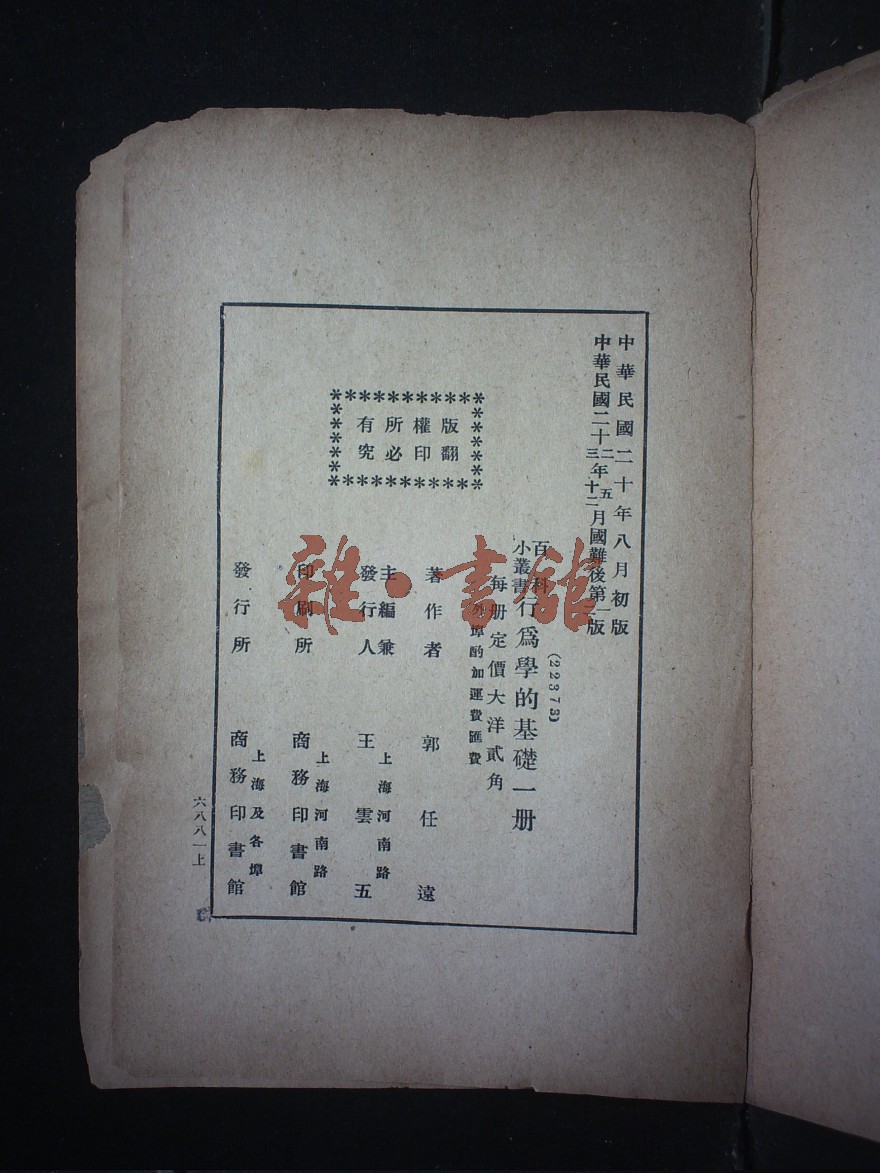 中華民國二十年八月初版
中華民國二十二三年五十二月國難後第一版
(22373)
百科小叢書行爲學的基礎一册
每册定價大洋貳角
外埠酌加運費匯費
版權所有
翻印必究
著作者 郭任遠
主編兼發行人 上海河南路 王雲五
印刷所 上海河南路 商務印書館
發行所 上海及各埠 商務印書館
六八八一上
雜·書館